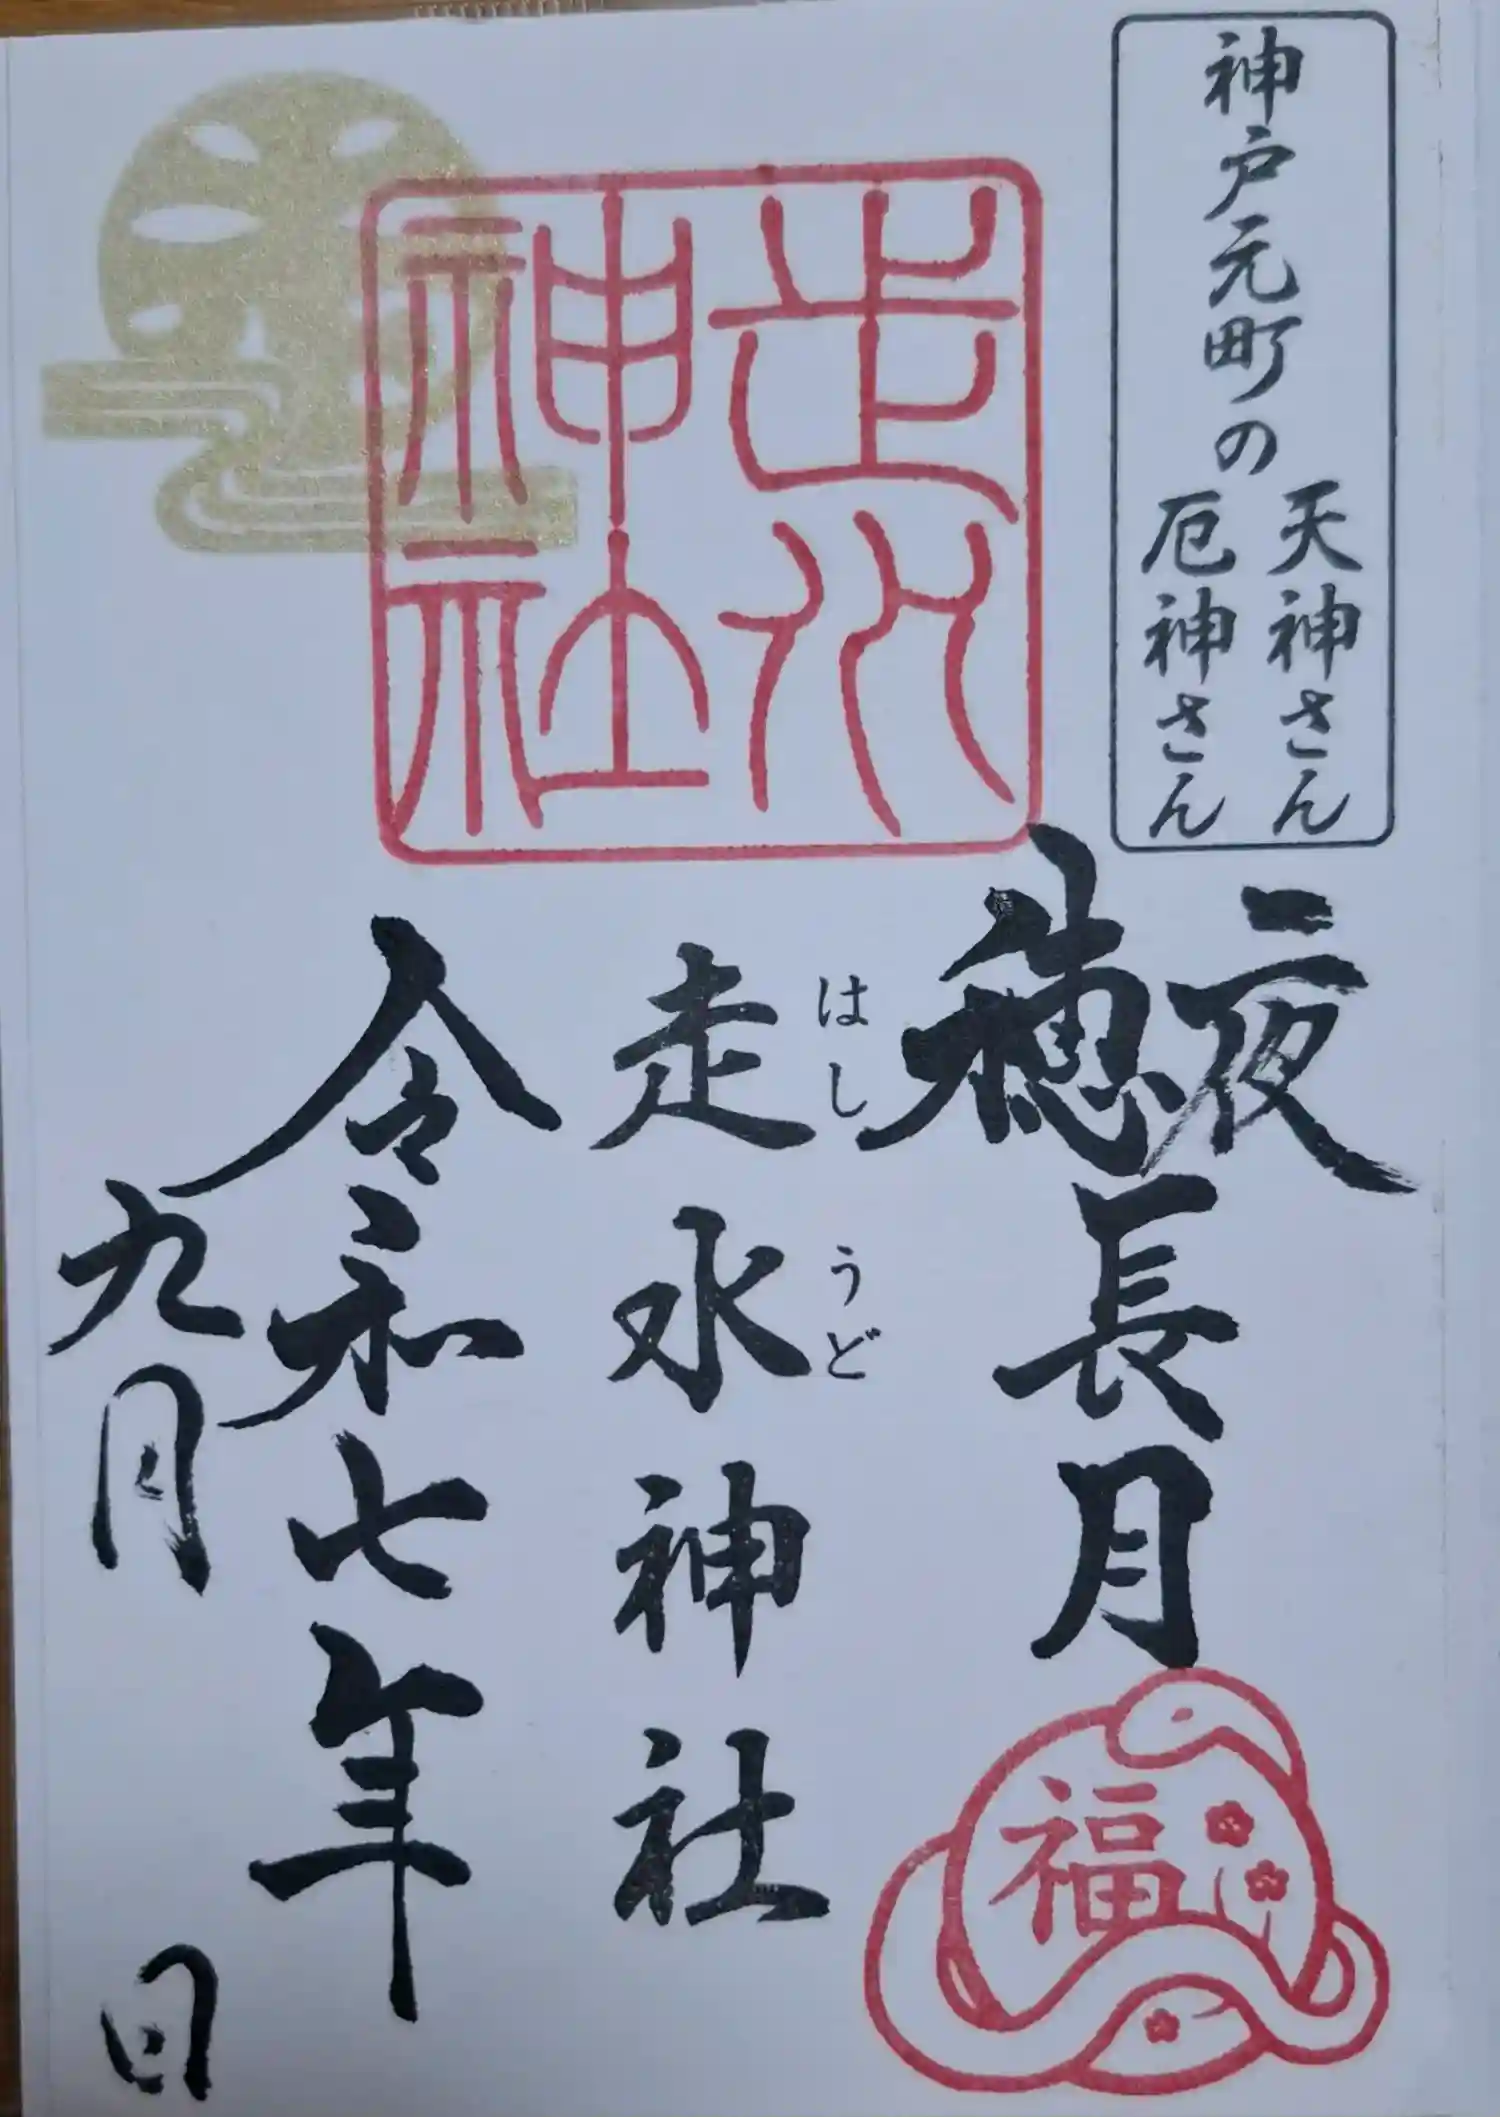 神戸元町の
天神さん
厄神さん
夜長月
穂長月
走水神社
はしうど
令和七年
九月 日
走水神社
福